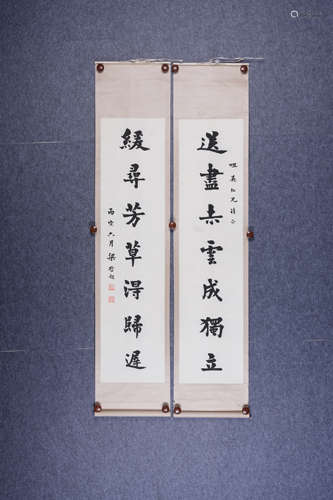 送盡赤雲成獨立
緩尋芳草得歸遲
丙寅六月 梁啓超